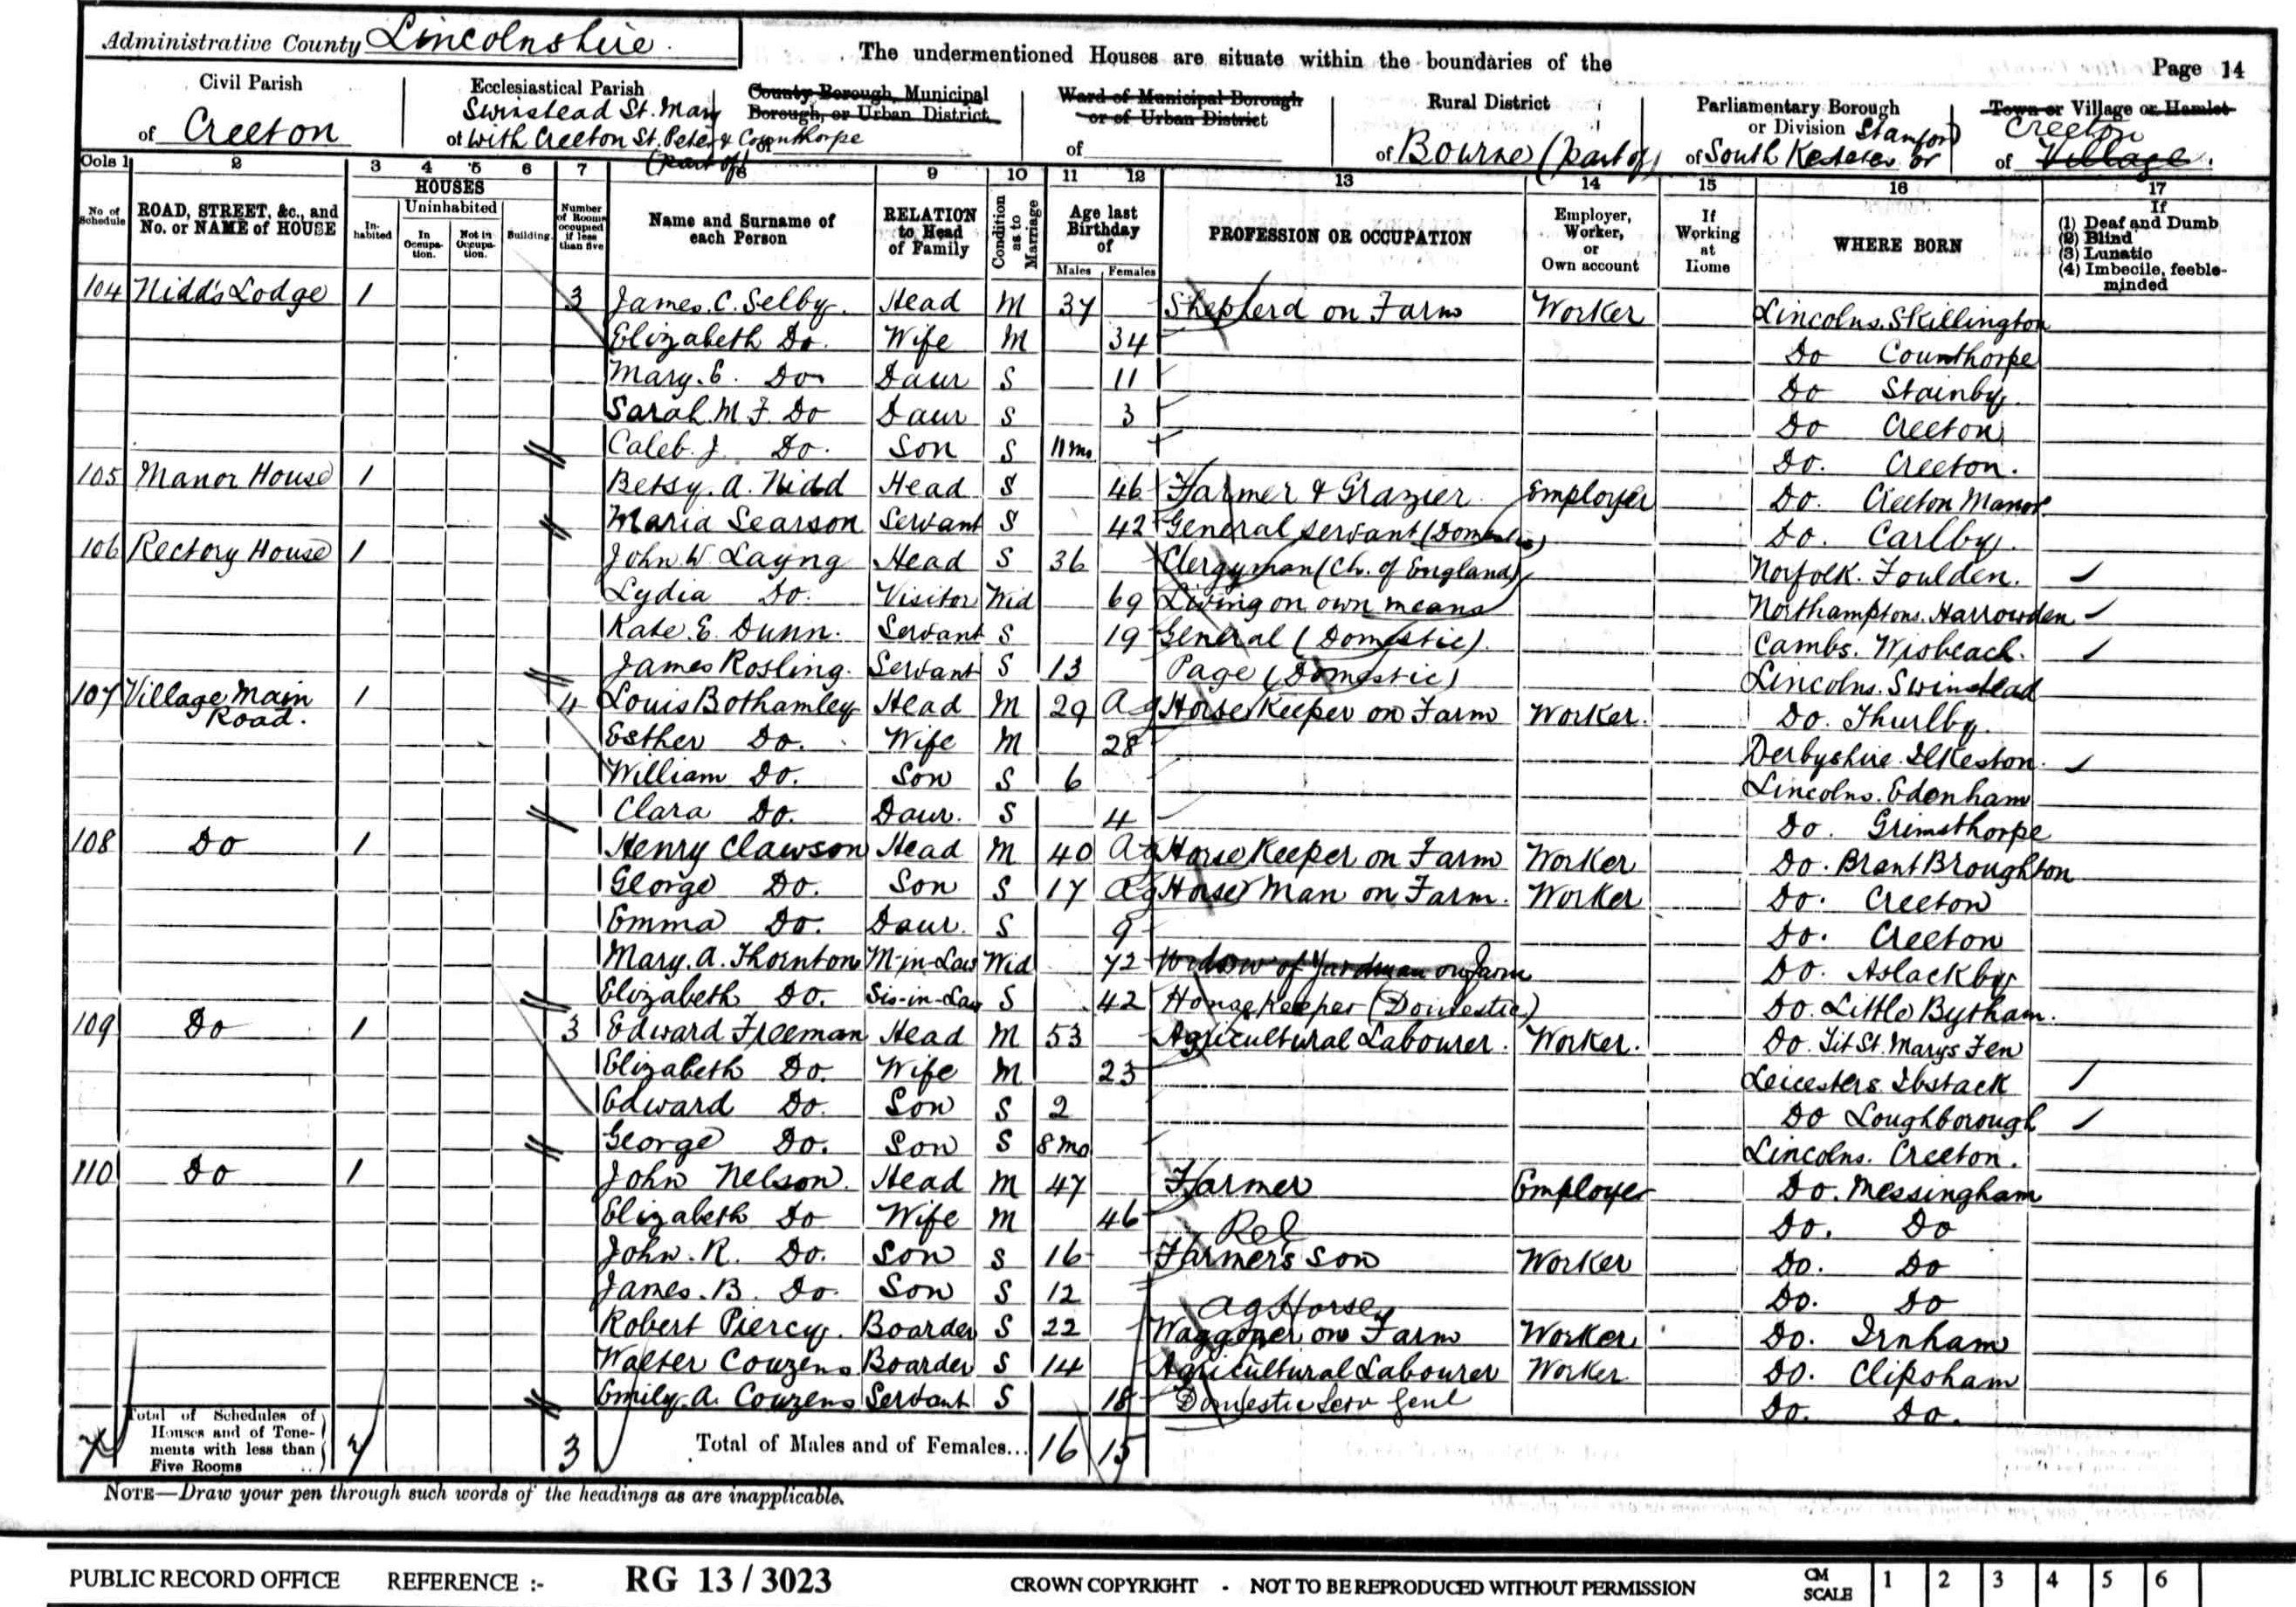 Administrative County Lincolnshire.
The undermentioned Houses are situate within the boundaries of the
Page 14
Civil Parish of Creeton
Ecclesiastical Parish of Swinstead St. Mary with Creeton St. Peter & Counthorpe (part of)
County Borough, Municipal Borough, or Urban District of
Ward of Municipal Borough or of Urban District of
Rural District of Bourne (part of)
Parliamentary Borough or Division of South Kesteven or Stamford
Town or Village or Hamlet of Creeton Village.
Cols 1 2 3 4 5 6 7 8 9 10 11 12 13 14 15 16 17
No of Schedule
ROAD, STREET, &c., and No. or NAME of HOUSE
HOUSES
Inhabited
Uninhabited
In Occupation.
Not in Occupation.
Building
Number of Rooms occupied if less than five
Name and Surname of each Person
RELATION to Head of Family
Condition as to Marriage
Age last Birthday of
Males Females
PROFESSION OR OCCUPATION
Employer, Worker, or Own account
If Working at Home
WHERE BORN
If
(1) Deaf and Dumb
(2) Blind
(3) Lunatic
(4) Imbecile, feeble-minded
104 Nidd's Lodge 1 3 James. C. Selby. Head M 37 Shepherd on Farm Worker Lincolns. Skillington
Elizabeth Do. Wife M 34 Do Counthorpe
Mary. E. Do Daur S 11 Do Stainby.
Sarah M. F. Do Daur S 3 Do Creeton
Caleb. J. Do. Son S 11mo. Do. Creeton.
105 Manor House 1 Betsy. A. Nidd Head S 46 Farmer & Grazier. Employer Do. Creeton Manor.
Maria Searson Servant S 42 General Servant (Domestic) Do. Carlby.
106 Rectory House 1 John W Layng Head S 36 Clergyman (Ch. of England) Norfolk. Foulden.
Lydia Do. Visitor Wid 69 Living on own means Northamptons. Harrowden
Kate. E. Dunn. Servant S 19 General (Domestic). Cambs. Wisbeach.
James Rosling. Servant S 13 Page (Domestic) Lincolns. Swinstead
107 Village Main Road. 1 4 Louis Bothamley Head M 29 Ag Horse Keeper on Farm Worker. Do. Thurlby.
Esther Do. Wife M 28 Derbyshire. Ilkeston.
William Do. Son S 6 Lincolns. Edenham
Clara Do. Daur. S 4 Do. Grimsthorpe
108 Do 1 Henry Clawson Head M 40 Ag Horse Keeper on Farm Worker Do. Brant Broughton
George Do. Son S 17 Ag Horse Man on Farm. Worker Do. Creeton
Emma Do. Daur. S 9 Do. Creeton
Mary. A. Thornton M-in-Law Wid 72 Widow of Yardman on Farm Do. Aslackby
Elizabeth Do. Sis-in-Law S 42 House Keeper (Domestic) Do. Little Bytham.
109 Do 1 3 Edward Freeman Head M 53 Agricultural Labourer. Worker. Do. Tit St. Marys Fen
Elizabeth Do. Wife M 23 Leicesters. Ibstack
Edward Do. Son S 2 Do Loughborough
George Do. Son S 8mo Lincolns. Creeton.
110 Do 1 John Nelson. Head M 47 Farmer Employer Do. Messingham
Elizabeth Do Wife M 46 Do. Do
Rel
John. R. Do. Son S 16 Farmer's Son Worker Do. Do
James. B. Do. Son S 12 Do. Do
Ag Horse
Robert Piercy. Boarder S 22 Waggoner on Farm Worker Do. Irnham
Walter Couzens Boarder S 14 Agricultural Labourer Worker Do. Clipsham
Emily. A. Couzens Servant S 18 Domestic Serv Genl Do. Do.
7 Total of Schedules of Houses and of Tenements with less than Five Rooms 7 3 Total of Males and of Females... 16 15
NOTE—Draw your pen through such words of the headings as are inapplicable.
PUBLIC RECORD OFFICE REFERENCE :- RG 13 / 3023 CROWN COPYRIGHT - NOT TO BE REPRODUCED WITHOUT PERMISSION CM SCALE 1 2 3 4 5 6